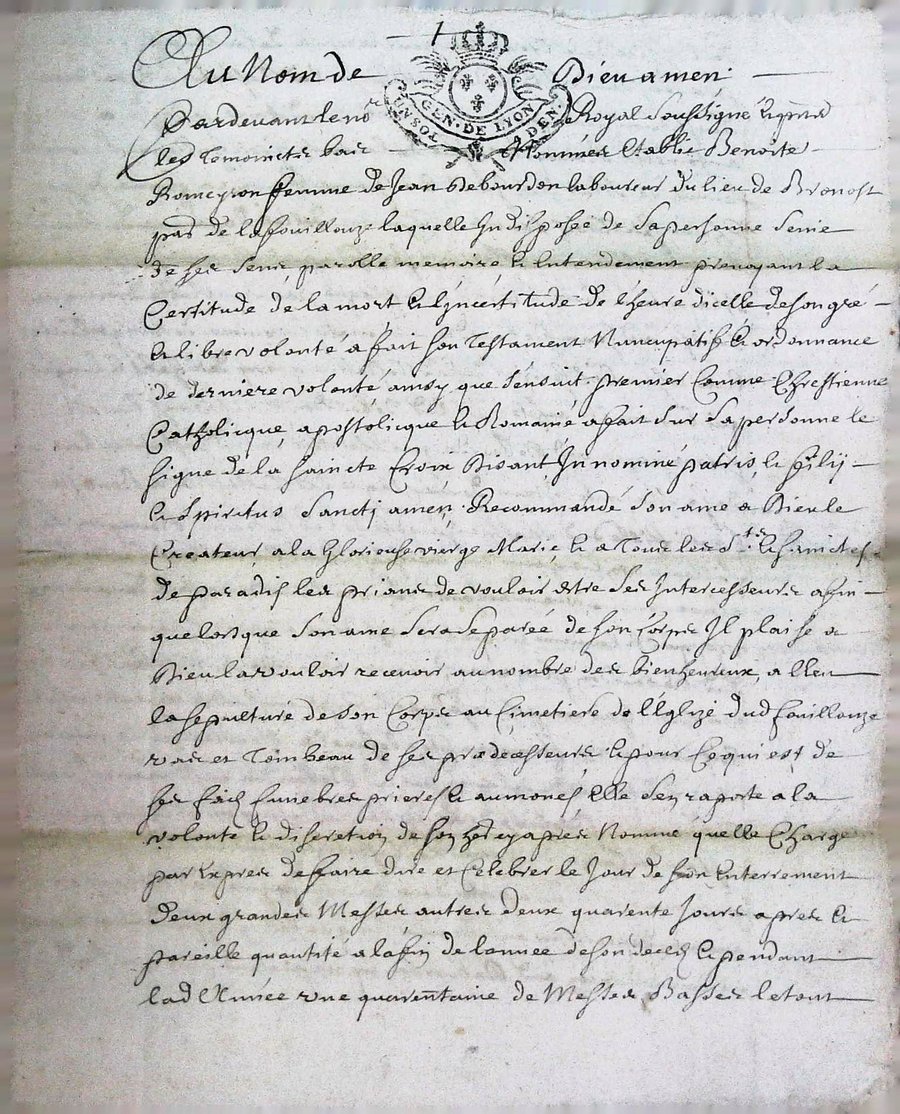 1
Au Nom de Dieu amen
GEN · DE LYON
Pardevant le nore Royal soussigné et pnts
les temoinctz bas Nommés establie Benoite
Romeyron femme de Jean Debourdon laboureur du lieu de
parr de lafouillouze laquelle Indisposée de sa personne senie
de ses sens parolle memoire et Entendement prevoyant la
Certitude de la mort et lincertitude de lheure dicelle de son gré
et libre volonté a fait son Testament Nuncupatif et ordonnance
de derniere volonté ainsy que sensuit, premier Comme Chrestienne
Catholicque apostolicque et Romaine a fait sur sa personne le
signe de la saincte Croix Disant In nominé patris, et filij
et spiritus sanctj amen, Recommandé son ame a Dieu le
Createur, a la Glorieuse vierge Marie, et a Tous les Sts et sainctes
de paradis les priant de vouloir estre ses Intercesseurs afin
que lorsque son ame sera separée de son Corps Il plaise a
Dieu la vouloir recevoir au nombre des bienheureux, a lleu
la sepulture de son Corps au Cimetiere de lEglize dud fouillouze
vas et Tombeau de ses prædecesseurs et pour Ce qui est de
ses funebres prieres et aumones Elle sen raporte a la
volonté et discretion de son her cy apres Nommé quelle Charge
par Exprès de faire dire et Celebrer le Jour de son Enterrement
deux grandes Messes autres deux quarente Jours apres et
pareille quantité a la fin de lannee de son deces et pendant
lad Année une quarentaine de Messes Basses le tout